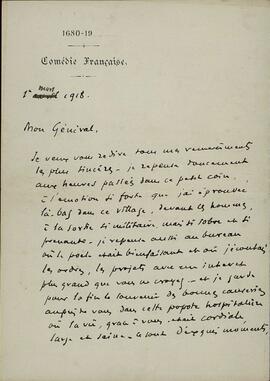 1680-19
Comédie Française.
1er mars 1918.
Mon Général,
Je veux vous redire tous mes remerciements
les plus sincères – je repense doucement
aux heures passées dans ce petit coin,
à l'émotion si forte que j'ai éprouvée
là-bas dans ce village, devant les hommes,
à la sortie si militaire, mais si sobre et si
prenante – je repense aussi au bureau
où le poële était bienfaisant et où j'écoutais
les ordres, les projets avec un intérêt
plus grand que vous ne croyez – et je garde
pour la fin le souvenir des bonnes causeries
auprès de vous dans cette popote hospitalière
où la vie, grâce à vous, était cordiale
large et saine – le tout d'exquis moments,